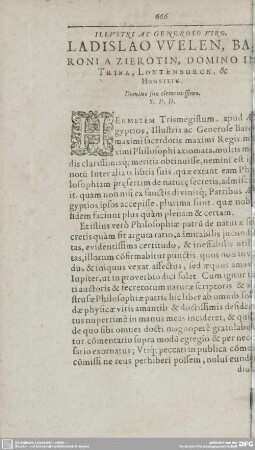 666
ILLVSTRI AC GENEROSO VIRO,
LADISLAO VVELEN, BA
RONI A ZIEROTIN, DOMINO IN
TRIBA, LONTENBVRCK, &
Domino suo clementissimo.
S. P. D.
HERMETEM Trismegistum, apud Æ
gyptios, Illustris ac Generose Baro
maximi sacerdotis maximi Regis, m
ximi Philosophi axiomata, multis m
dis clarissimas meritis obtinuisse, nemini est ig
noti Inter alia is libris suis, quæ extant eam Phi
losophiam præsertim de natura secretis, admisc
it, quam non nisi ex sanctis divinisq; Patribus Æ
gyptios ipsos accepisse, plurima sunt, quæ nobis
fidem faciunt plus quàm plenam & certam.
Etsi us verò Philosophiæ patrū de naturæ se
cretis quàm sit arguta ratio, admirabilis jucundi
tas, evidentissima certitudo, & ineffabilis utili
tas, illorum cōfirmabunt punctis, quos non invi
dus & iniquus vexat affectus, sed æquus amavit
Iupiter, ut in proverbio dici solet. Cum igitur tan
ti auctoris & secretorum naturæ scriptoris & a
strusæ Philosophiæ patris hic liber ab omnib. soli
dæ physicæ vitis amantib. & doctissimis desidera
tus nuperrimè in manus meas incideret, & qui
de quo sibi omnes docti magnopere gratulabun
tur cōmentario supra modū egregio & per neces
sario exornatus; Vtiq; peccati in publica cōmoda
cōmissi ne reus perhiberi possem, nolui eundē
diu